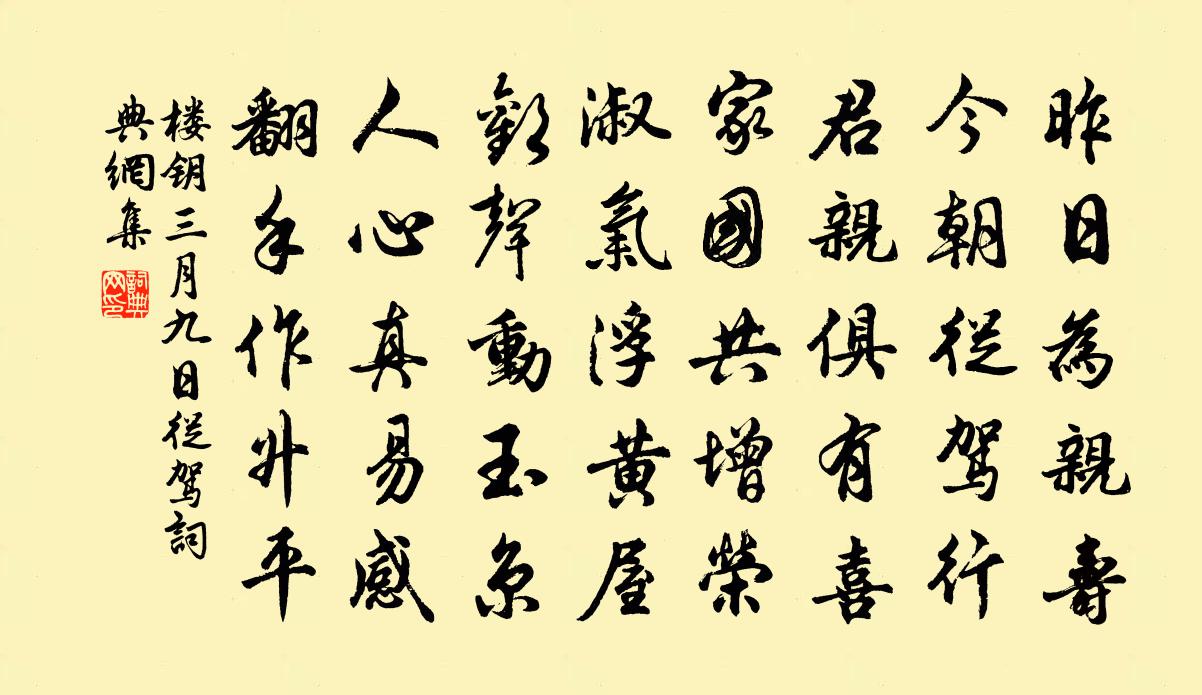 昨日為親壽
今朝從駕行
君親俱有喜
家國共增榮
淑氣浮黃屋
歡聲動玉京
人心真易感
翻手作升平
楼钥三月九日從駕詞
典網集
詞典
网印